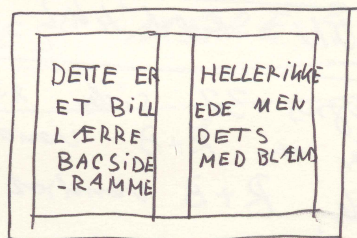 DETTE ER
ET BILL
LÆRRE
BAGSIDE
-RAMME
HELLER IKKE
EDE MEN
DETS
MED BLÆND